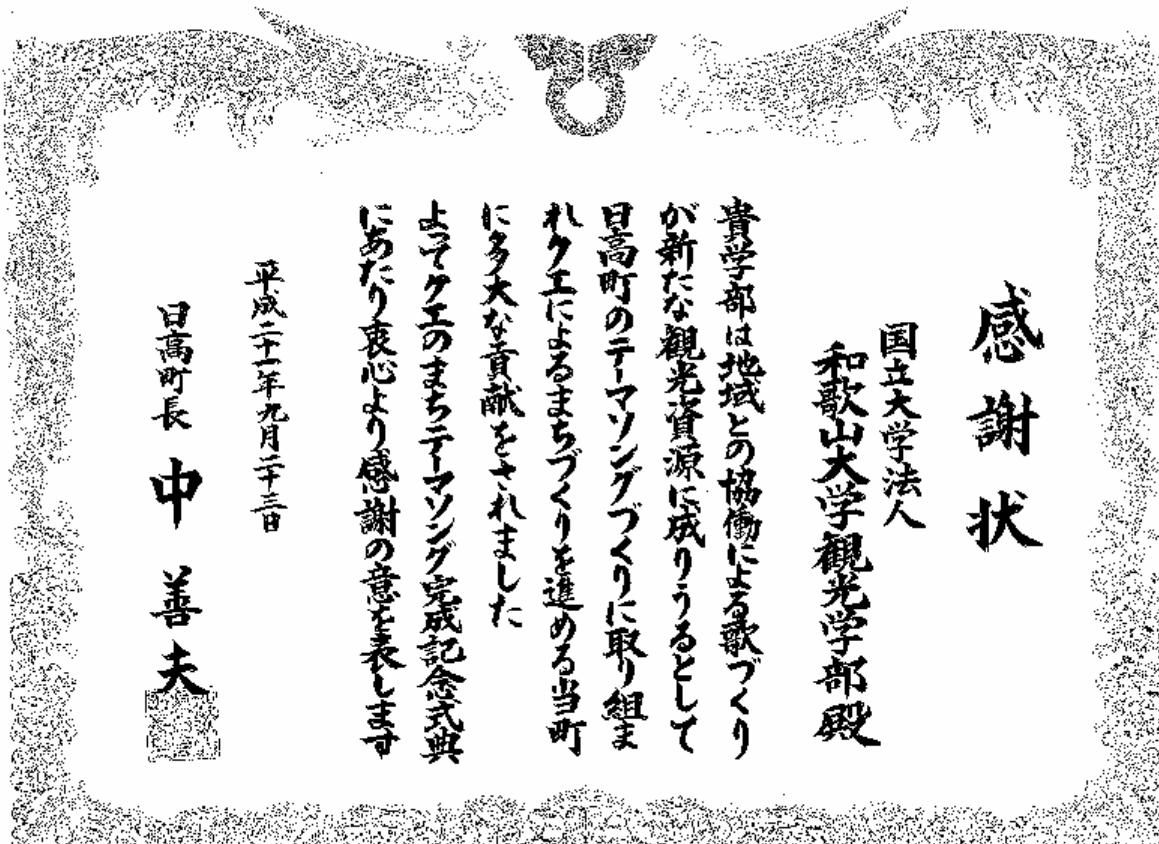 感謝状
国立大学法人
和歌山大学観光学部殿
貴学部は地域との協働による歌づくり
が新たな観光資源に成りうるとして
日高町のテーマソングづくりに取り組ま
れクエによるまちづくりを進める当町
に多大な貢献をされました
よってクエのまちテーマソング完成記念式典
にあたり衷心より感謝の意を表します
平成二十一年九月二十三日
日高町長 中善夫